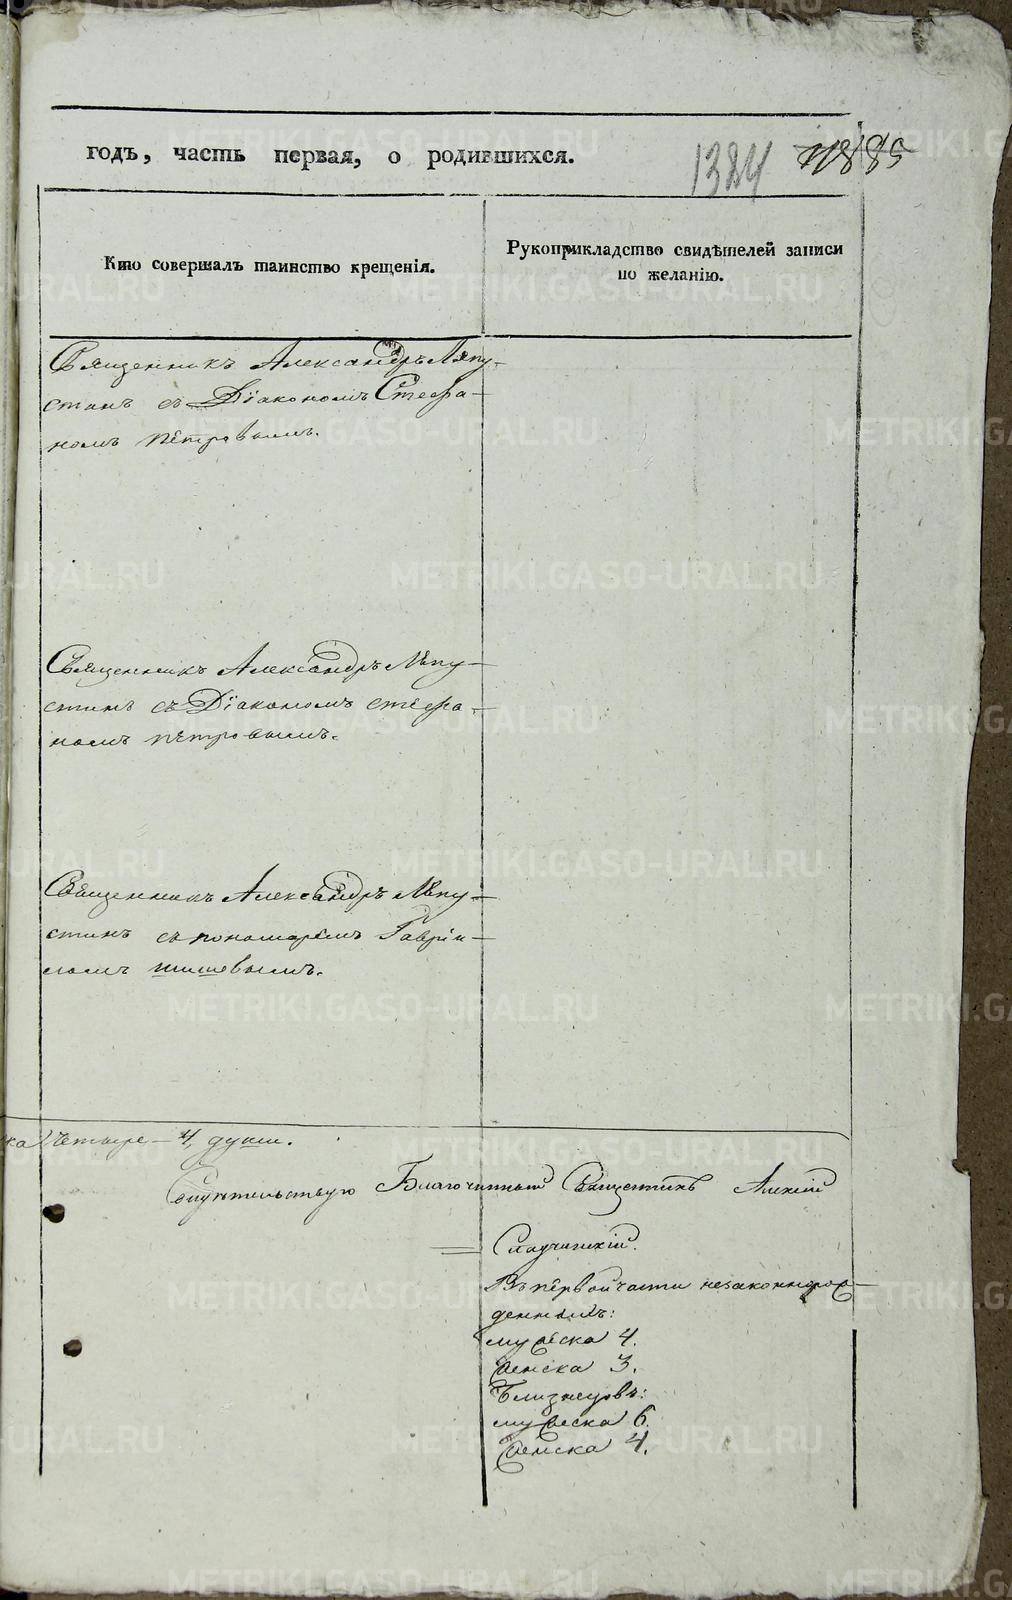 годъ, часть первая, о родившихся.
1324 885
Кто совершалъ таинство крещенія.
Рукоприкладство свидѣтелей записи
по желанію.
Священникъ Александръ Ляпу-
стинъ съ Діакономъ Стефа-
номъ Петровымъ.
Священникъ Александръ Ляпу-
стинъ съ Діакономъ Стефа-
номъ Петровымъ.
Священникъ Александръ Ляпу-
стинъ съ пономаремъ Гавріи-
ломъ
ка четыре - 4, души.
Свидѣтельствую Благочинный Священникъ Алексій
Въ первой части незаконнорож-
денныхъ:
мужеска 4.
женска 3.
Близнецовъ:
мужеска 6.
женска 4.
METRIKI.GASO-URAL.RU